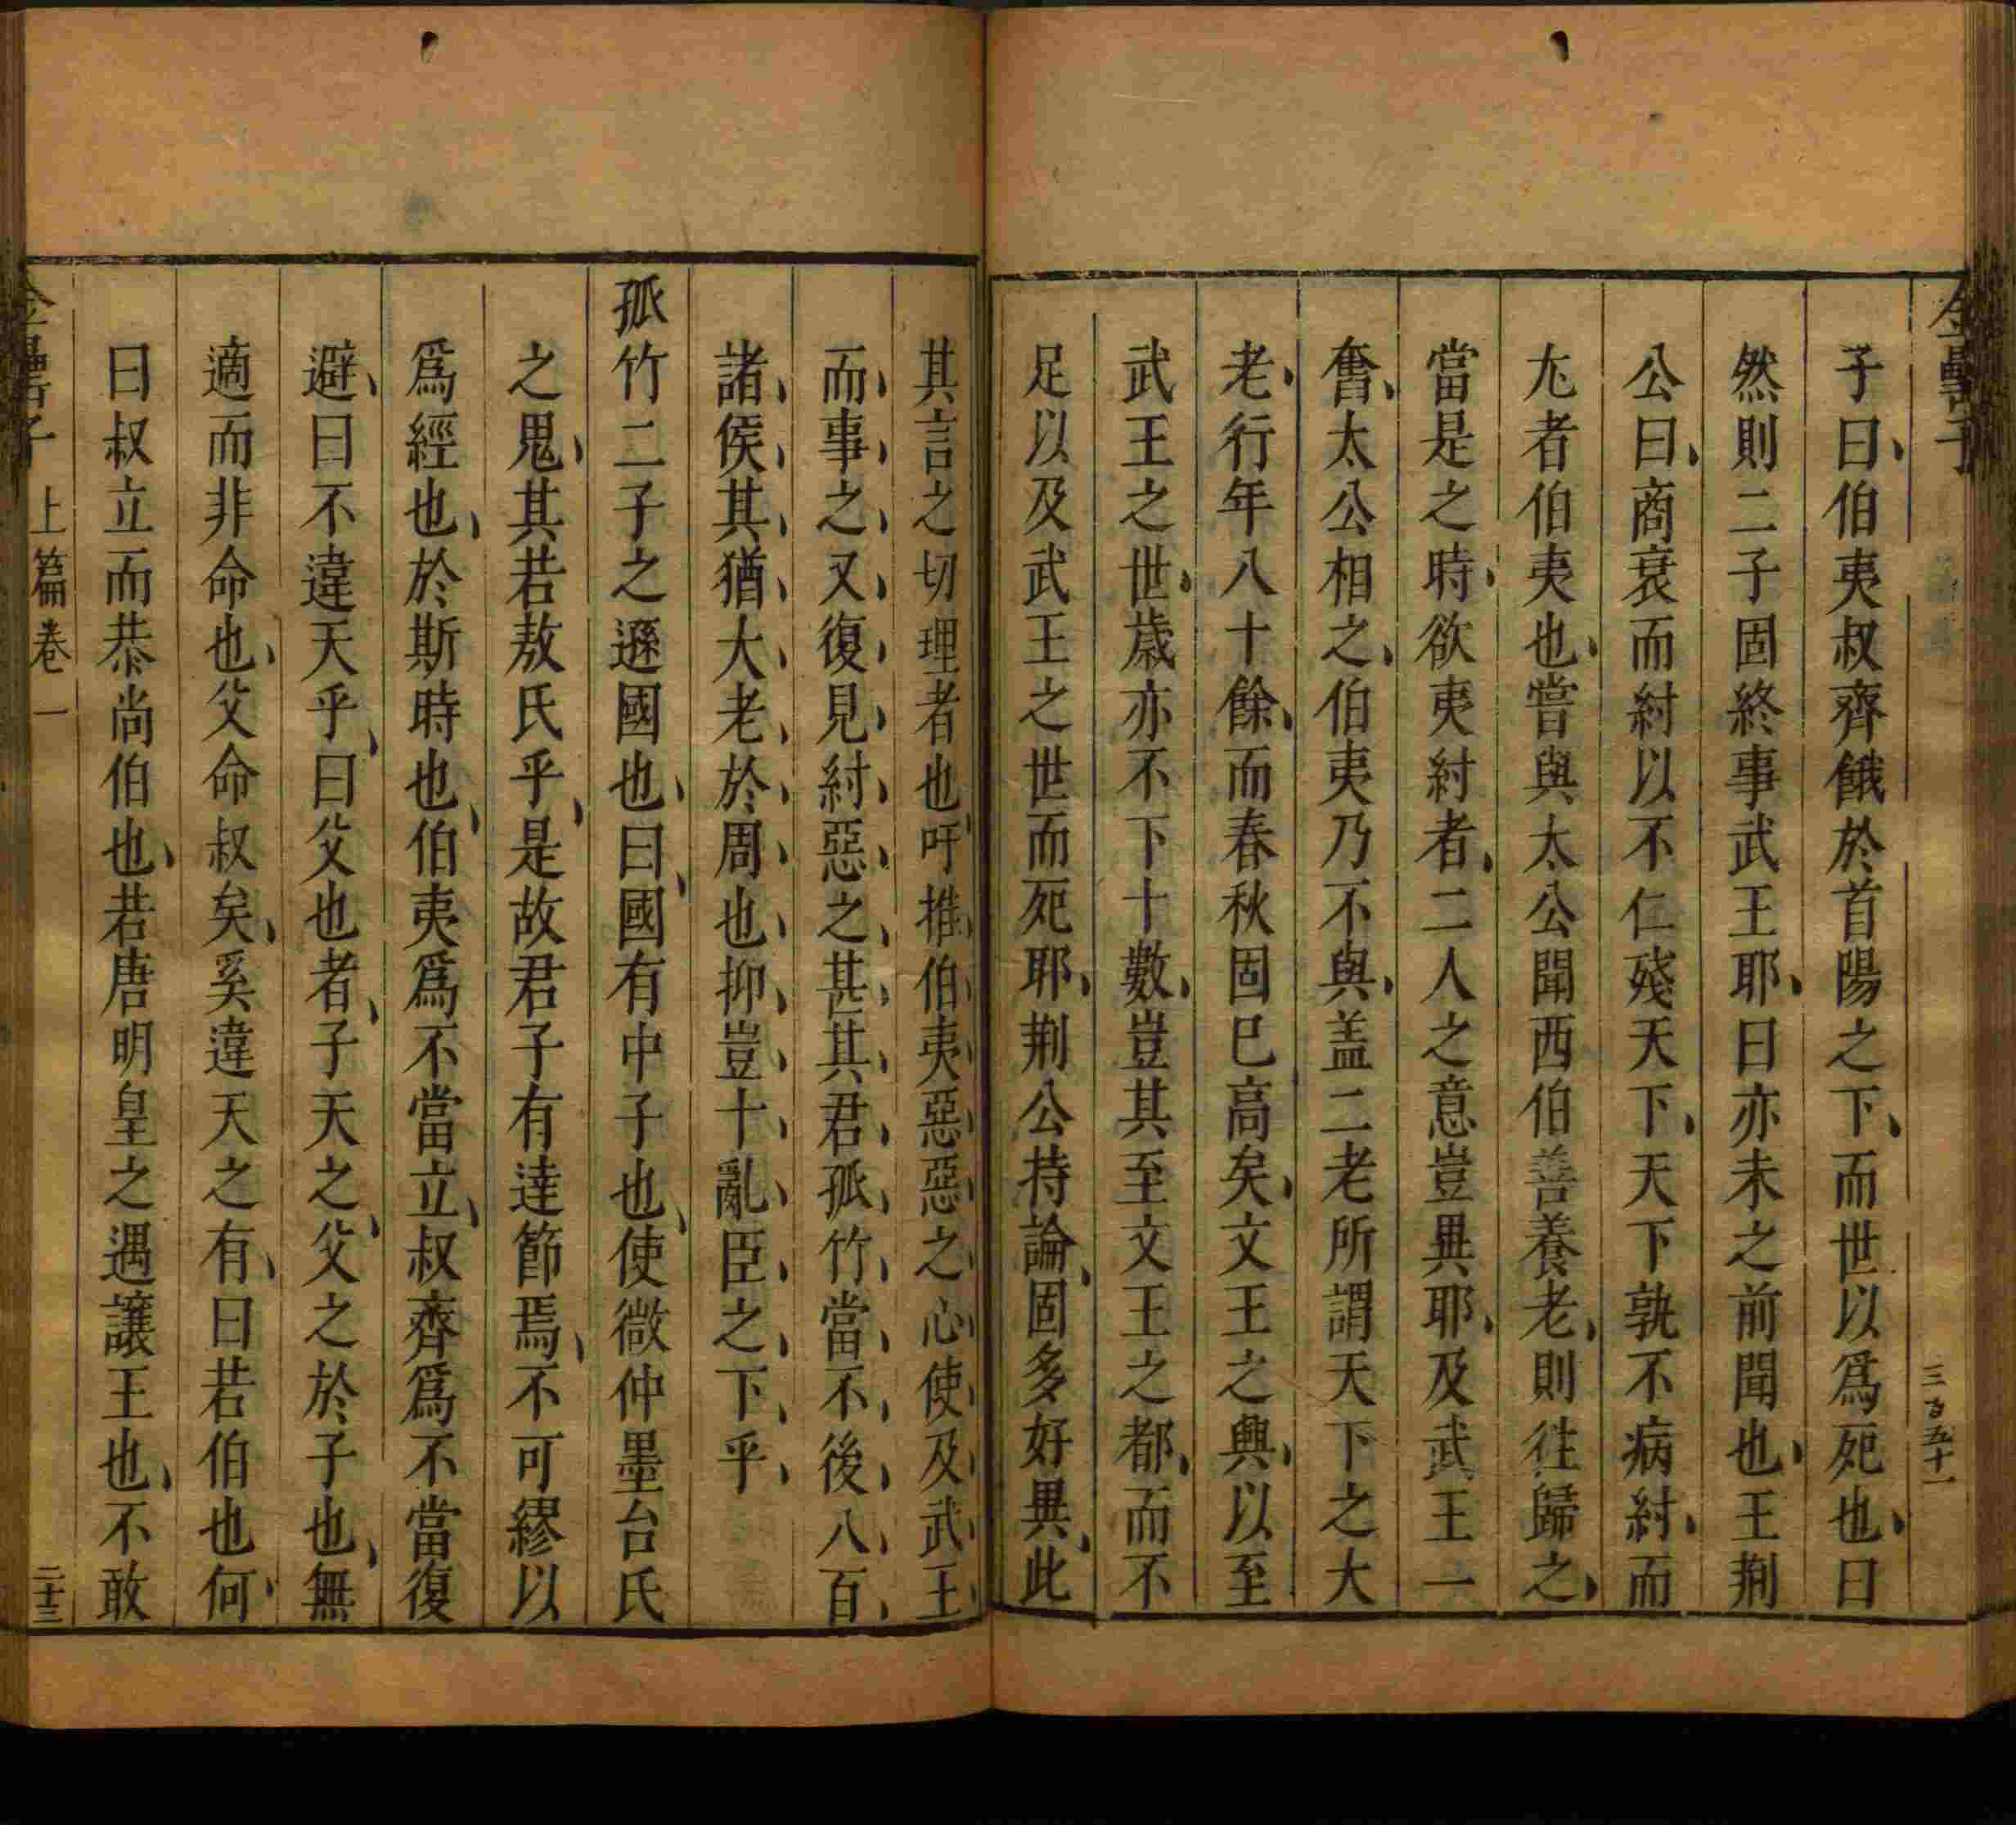 金罍子
三百五十一
子曰、伯夷叔齊餓於首陽之下、而世以爲死也、曰
然則二子固終事武王耶、曰亦未之前聞也、王荆
公曰、商衰而紂以不仁殘天下、天下孰不病紂、而
尤者伯夷也、嘗與太公聞西伯善養老、則徃歸之、
當是之時、欲夷紂者、二人之意豈異耶、及武王一
奮、太公相之、伯夷乃不與、盖二老所謂天下之大
老、行年八十餘、而春秋固巳高矣、文王之興、以至
武王之世、歲亦不下十數、豈其至文王之都、而不
足以及武王之世而死耶、荆公持論、固多好異、此
其言之切理者也、吁推伯夷惡惡之心使及武王
而事之又復見紂惡之甚其君孤竹當不後八百
諸侯其猶大老於周也抑豈十亂臣之下乎
孤竹二子之遜國也、曰、國有中子也、使微仲墨台氏
之鬼、其若敖氏乎、是故君子有達節焉、不可繆以
爲經也、於斯時也、伯夷爲不當立、叔齊爲不當復
避、曰不違天乎、曰父也者、子天之、父之於子也、無
適而非命也、父命叔矣、奚違天之有、曰若伯也何、
曰叔立而恭尚伯也、若唐明皇之遇讓王也、不敢
金罍子 上篇卷一 二十三